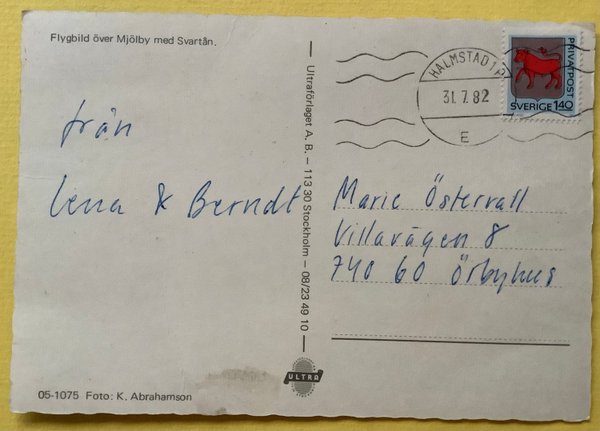 Flygbild över Mjölby med Svartån.
från
Lena & Berndt
05-1075 Foto: K. Abrahamson
Ultraförlaget A. B. – 113 30 Stockholm – 08/23 49 10
ULTRA
HALMSTAD 1
31.7.82
E
PRIVATPOST
SVERIGE 140
Marie Östervall
Villavägen 8
740 60 Örbyhus